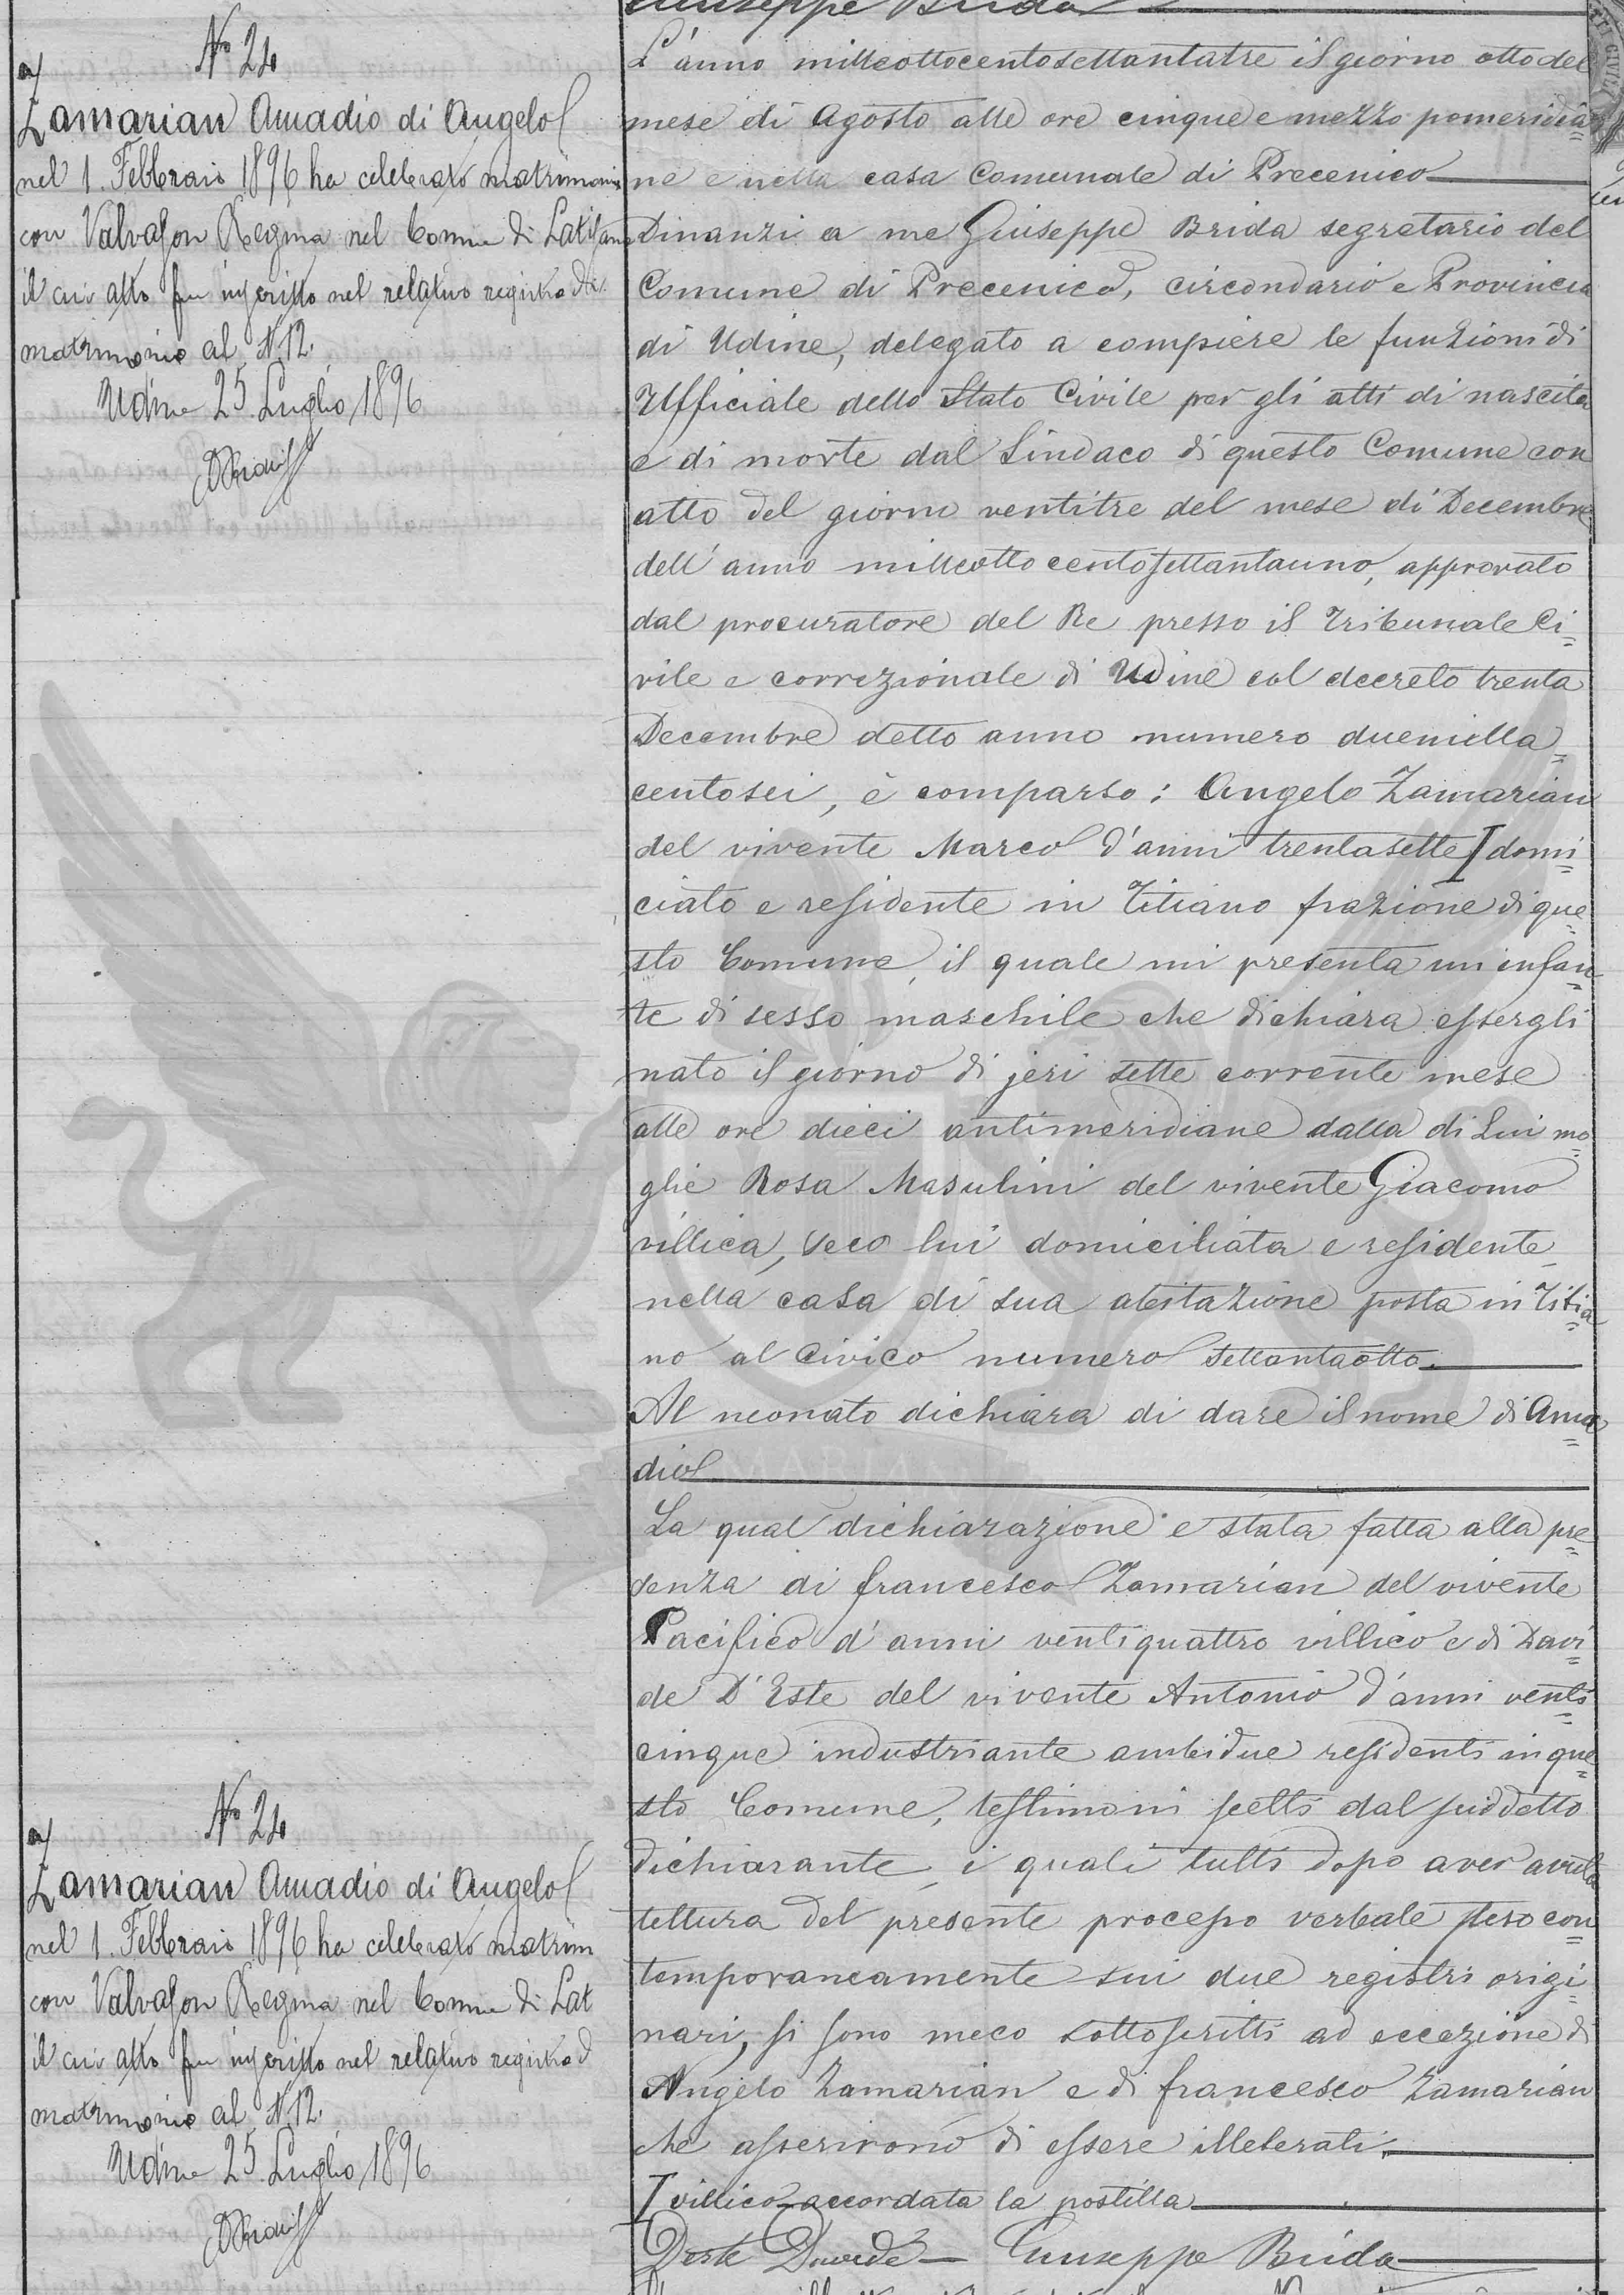 Giuseppe Brida
N.o 24
a/
Zamarian Amadio di Angelo
nel 1. Febbraio 1896 ha celebrato matrimonio
con Valvason Regina nel Comune di Latisana
il cui atto fu inscritto nel relativo registro di
matrimonio al N. 12.
Udine 25 Luglio 1896
L'anno milleottocentosettantatre il giorno otto del
mese di Agosto alle ore cinque e mezzo pomeridia=
ne e nella casa Comunale di Precenico
Dinanzi a me Giuseppe Brida segretario del
Comune di Precenico, circondario e Provincia
di Udine, delegato a compiere le funzioni di
Ufficiale dello Stato Civile per gli atti di nascita
e di morte dal Sindaco di questo Comune con
atto del giorno ventitre del mese di Decembre
dell'anno milleottocentosettantauno, approvato
dal procuratore del Re presso il Tribunale Ci=
vile e correzionale di Udine col decreto trenta
Decembre detto anno numero duemilla=
centosei, è comparso: Angelo Zamarian
del vivente Marco d'anni trentasette I domi=
ciato e residente in Titiano frazione di que=
sto Comune, il quale mi presenta un infan=
te di sesso maschile che dichiara essergli
nato il giorno di jeri sette corrente mese
alle ore dieci antimeridiane dalla di Lui mo=
glie Rosa Masulini del vivente Giacomo
villica, seco lui domiciliata e residente
nella casa di sua abitazione posta in Titia=
no al Civico numero settantaotto.
Al neonato dichiara di dare il nome di Ama=
dio
La qual dichiarazione e stata fatta alla pre=
senza di Francesco Zamarian del vivente
Pacifico d'anni ventiquattro villico e di Davi=
de D'Este del vivente Antonio d'anni venti=
cinque industriante ambidue residenti in que=
sto Comune, testimoni scelti dal suddetto
dichiarante, i quali tutti dopo aver avuta
lettura del presente processo verbale steso con=
temporaneamente sui due registri origi=
nari, si sono meco sottoscritti ad eccezione di
Angelo Zamarian e di Francesco Zamarian
che asserirono di essere illeterati.
I villico accordata la postilla
Deste Davide — Giuseppe Brida
N.o 24
a/
Zamarian Amadio di Angelo
nel 1. Febbraio 1896 ha celebrato matrim
con Valvason Regina nel Comune di Lat
il cui atto fu inscritto nel relativo registro d
matrimonio al N. 12.
Udine 25 Luglio 1896